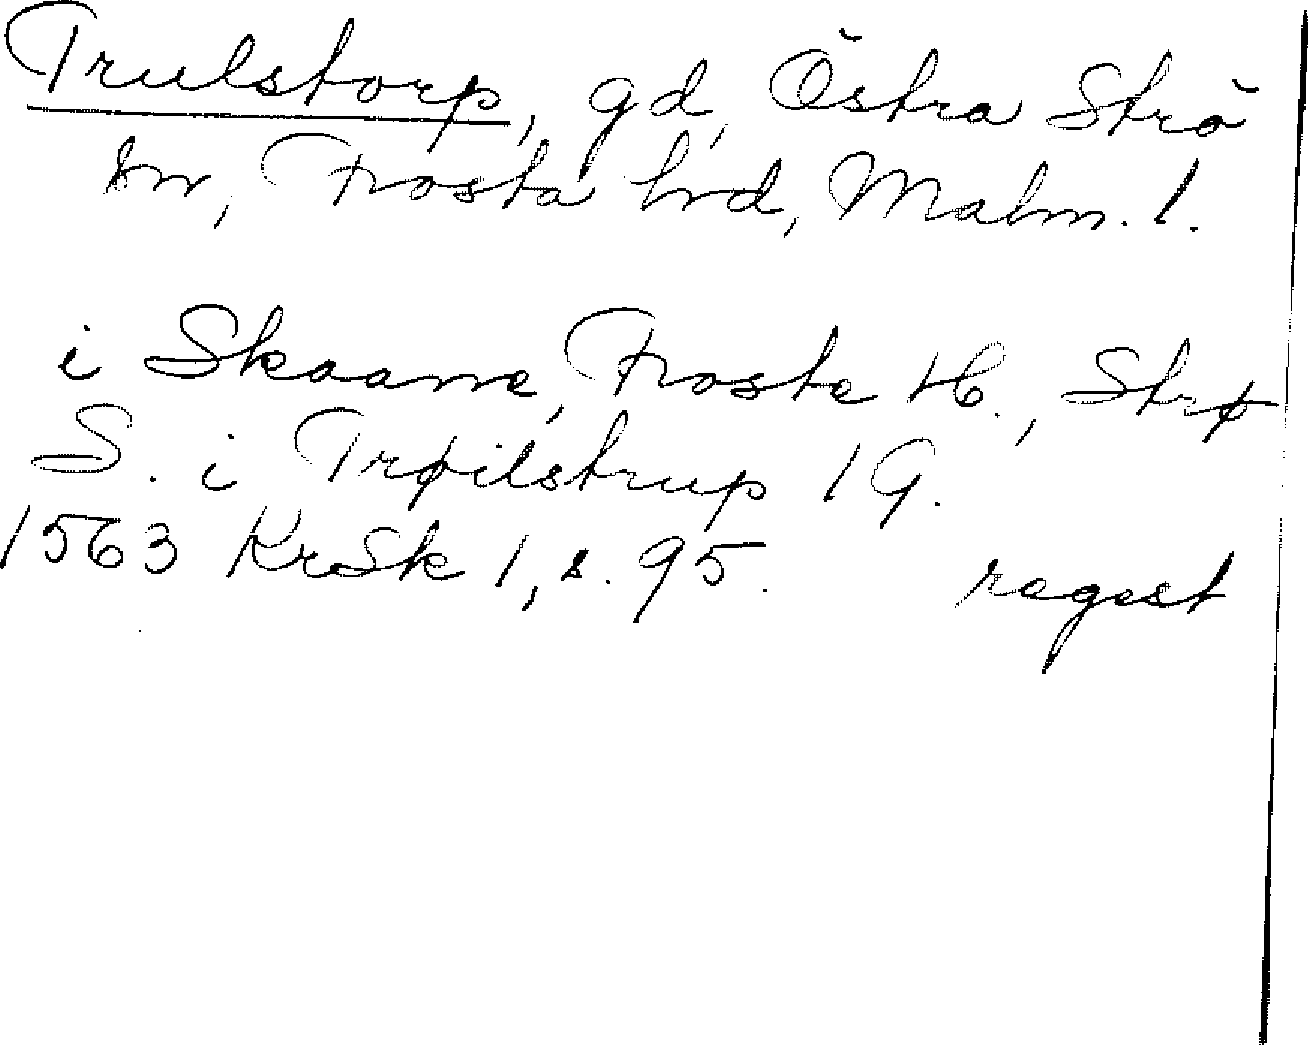 Trulstorp, gd, Östra Strö
sn, Frosta hrd, Malm. l.
i Skaane, Froste H., Strø
S. i Trøilstrup 1 G.
1563 KrSk 1, s. 95. regest